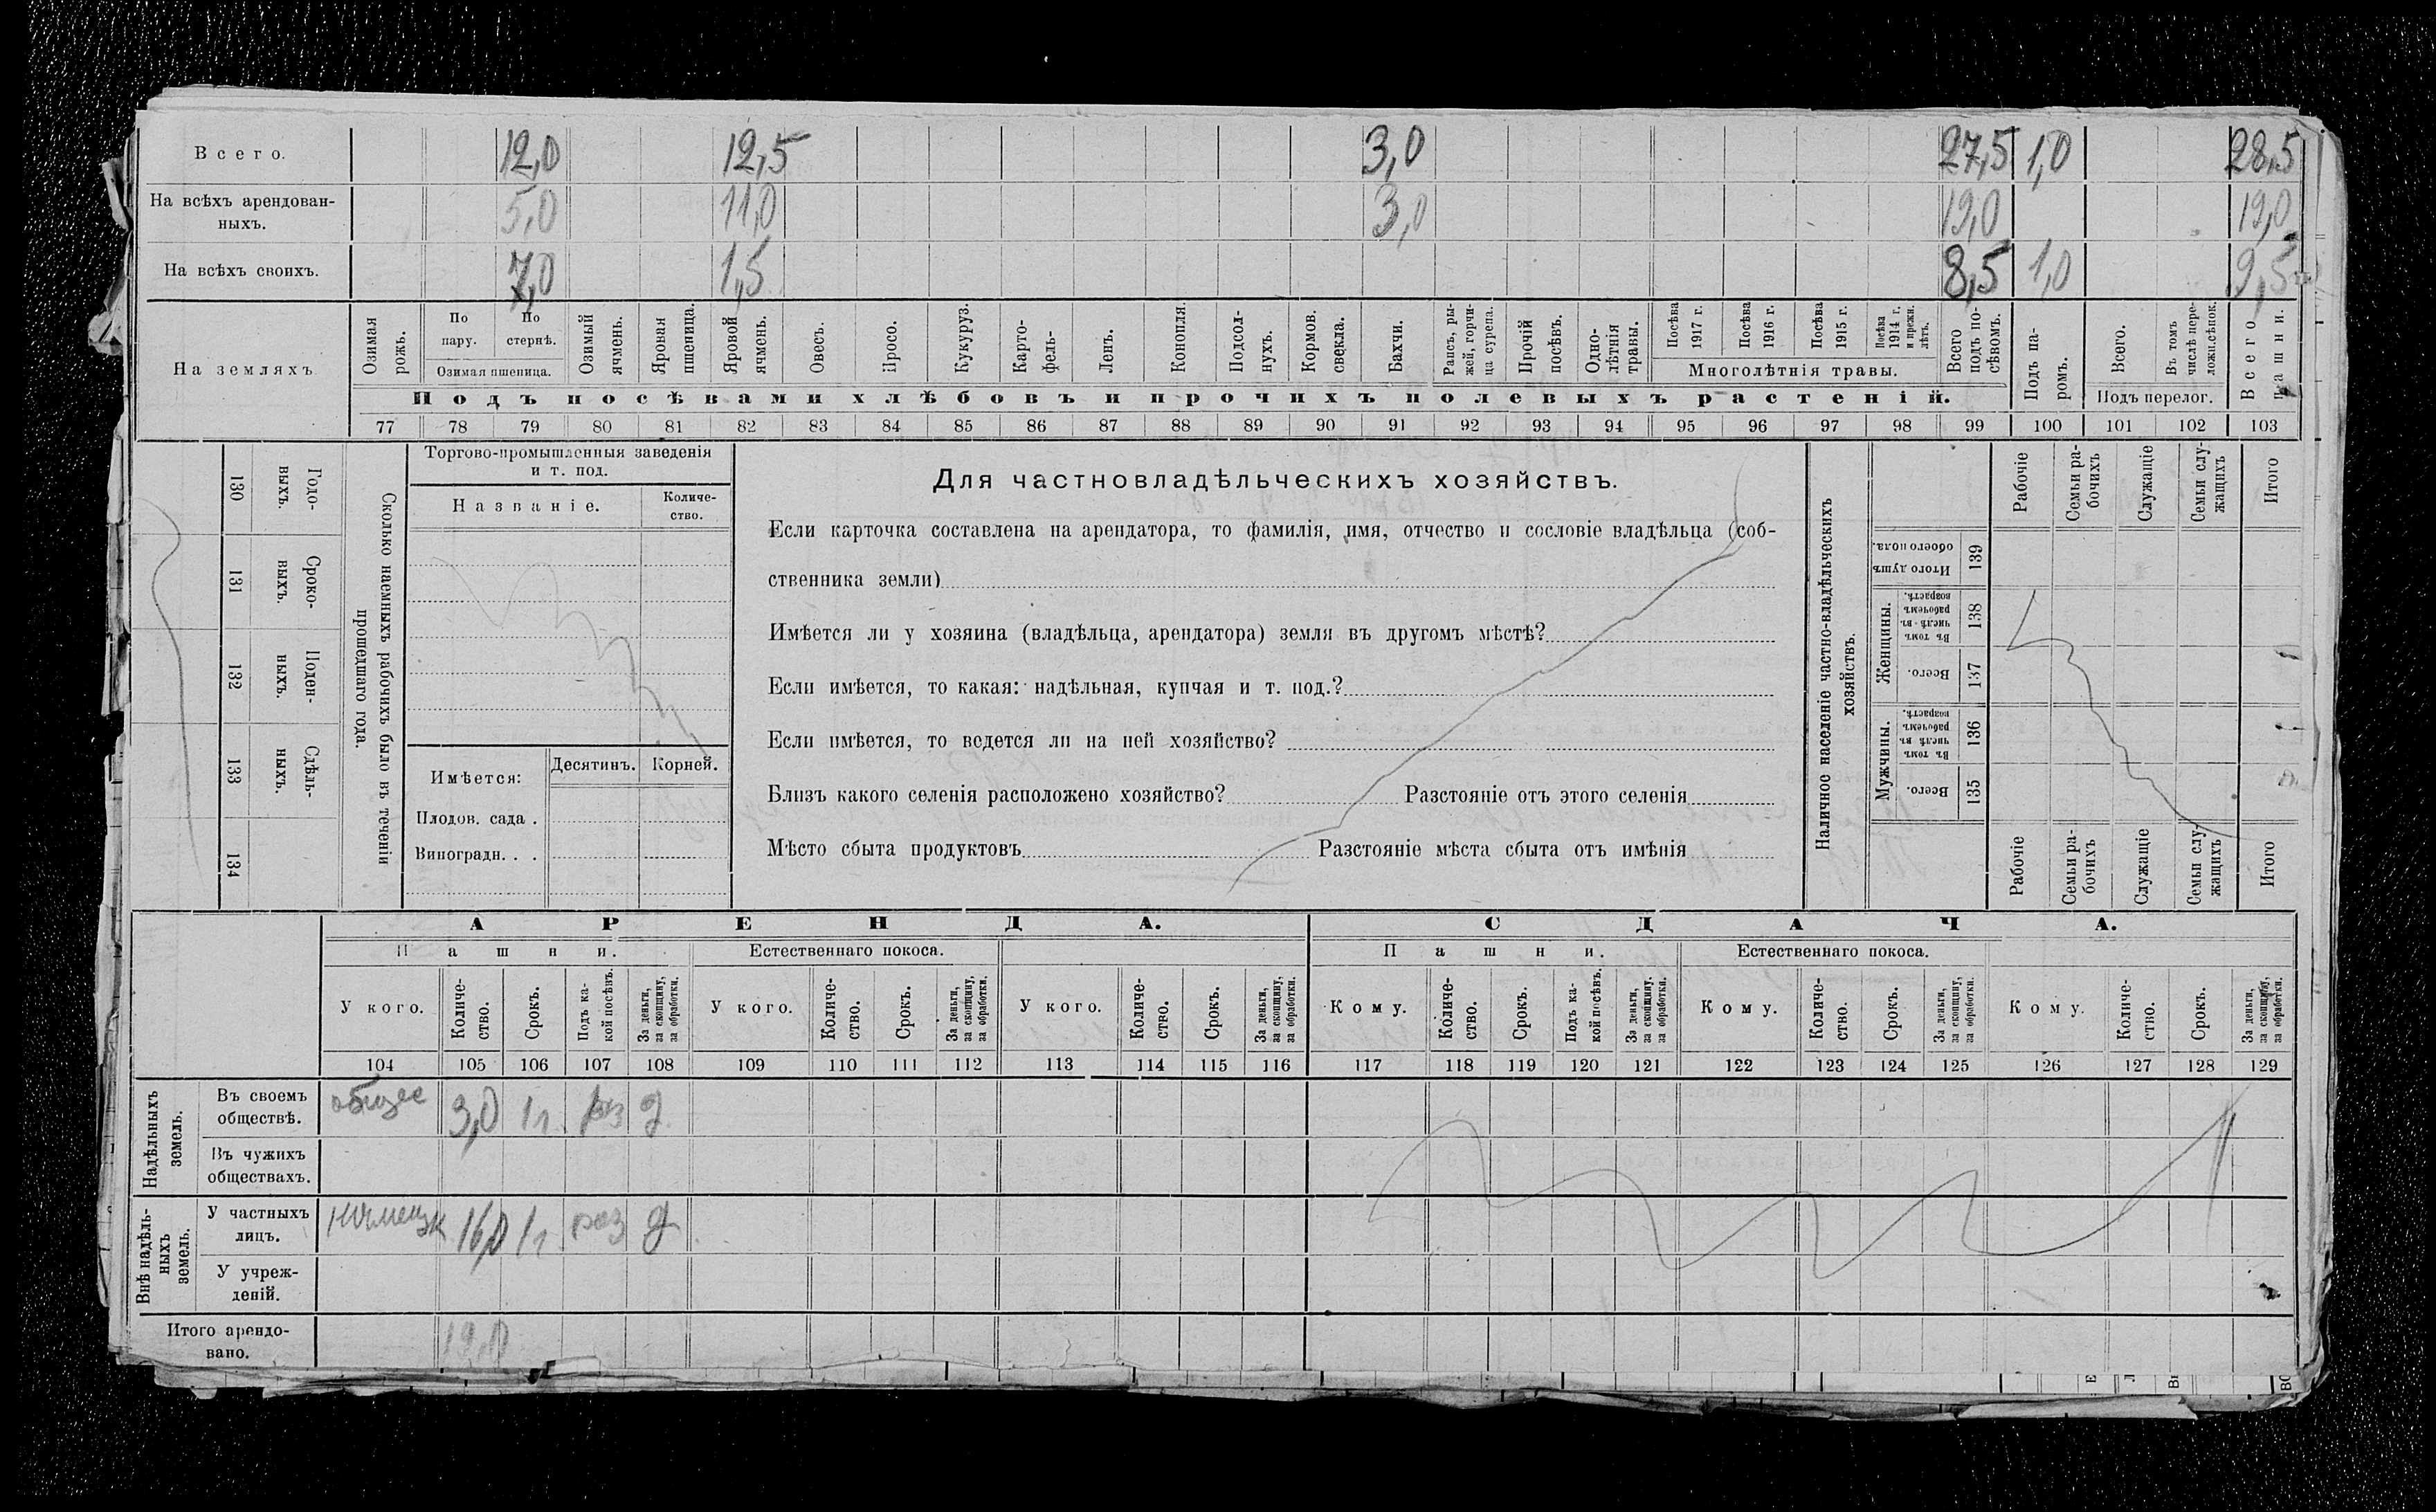 Всего. 12,0 12,5 3,0 27,5 1,0 28,5
На всѣхъ арендован-
ныхъ. 5,0 11,0 3,0 19,0 19,0
На всѣхъ своихъ. 7,0 1,5 8,5 1,0 9,5
На земляхъ
Озимая рожь.
По пару.
По стернѣ.
Озимая пшеница.
Озимый ячмень.
Яровая пшеница.
Яровой ячмень.
Овесъ.
Просо.
Кукуруз.
Карто-
фель-
Ленъ.
Конопля.
Подсол-
нухъ.
Кормов. свекла.
Бахчи.
Рапсъ, ры-
жей, горчи-
ца сурепа.
Прочій посѣвъ.
Одно-
лѣтнія травы.
Посѣва 1917 г.
Посѣва 1916 г.
Посѣва 1915 г.
Посѣва 1914 г. и прежн. лѣтъ.
Многолѣтнія травы.
Всего подъ по-
сѣвомъ.
Подъ па-
ромъ.
Всего.
Въ томъ числѣ пере-
ложн.сѣнок.
Подъ перелог.
Всего пашни.
Подъ посѣвами хлѣбовъ и прочихъ полевыхъ растеній.
77 78 79 80 81 82 83 84 85 86 87 88 89 90 91 92 93 94 95 96 97 98 99 100 101 102 103
130 Годо-
выхъ.
131 Сроко-
ныхъ.
132 Поден-
ныхъ.
133 Сдѣль-
ныхъ.
134
Сколько наемныхъ рабочихъ было въ теченіи
прошедшаго года.
Торгово-промышленныя заведенія
и т. под.
Названіе.
Количе-
ство.
Имѣется:
Десятинъ. Корней.
Плодов. сада .
Виноградн. . .
Для частновладѣльческихъ хозяйствъ.
Если карточка составлена на арендатора, то фамилія, имя, отчество и сословіе владѣльца (соб-
ственника земли)
Имѣется ли у хозяина (владѣльца, арендатора) земля въ другомъ мѣстѣ?
Если имѣется, то какая: надѣльная, купчая и т. под.?
Если имѣется, то ведется ли на ней хозяйство?
Близъ какого селенія расположено хозяйство? Разстояніе отъ этого селенія
Мѣсто сбыта продуктовъ Разстояніе мѣста сбыта отъ имѣнія
Наличное населеніе частно-владѣльческихъ
хозяйствъ.
Рабочіе
Семьи ра-
бочихъ
Служащіе
Семьи слу-
жащихъ
Итого
Итого душъ обоего пола. 139
Женщины.
Въ томъ числѣ въ рабочемъ возрастѣ. 138
Всего. 137
Мужчины.
Въ томъ числѣ въ рабочемъ возрастѣ. 136
Всего. 135
Рабочіе
Семьи ра-
бочихъ
Служащіе
Семьи слу-
жащихъ
Итого
АРЕНДА. СДАЧА.
Пашни. Естественнаго покоса. Пашни. Естественнаго покоса.
У кого.
Количе-
ство.
Срокъ.
Подъ ка-
кой посѣвъ.
За деньги, за скопщину, за обработки.
У кого.
Количе-
ство.
Срокъ.
За деньги, за скопщину, за обработки.
У кого.
Количе-
ство.
Срокъ.
За деньги, за скопщину, за обработки.
Кому.
Количе-
ство.
Срокъ.
Подъ ка-
кой посѣвъ.
За деньги, за скопщину, за обработки.
Кому.
Количе-
ство.
Срокъ.
За деньги, за скопщину, за обработки.
Кому.
Количе-
ство.
Срокъ.
За деньги, за скопщину, за обработки.
104 105 106 107 108 109 110 111 112 113 114 115 116 117 118 119 120 121 122 123 124 125 126 127 128 129
Надѣльныхъ
земель.
Въ своемъ
обществѣ. общее 3,0 1г. раз д
Въ чужихъ
обществахъ.
Внѣ надѣль-
ныхъ
земель.
У частныхъ
лицъ. 16,0 1г раз д
У учреж-
деній.
Итого арендо-
вано. 19,0